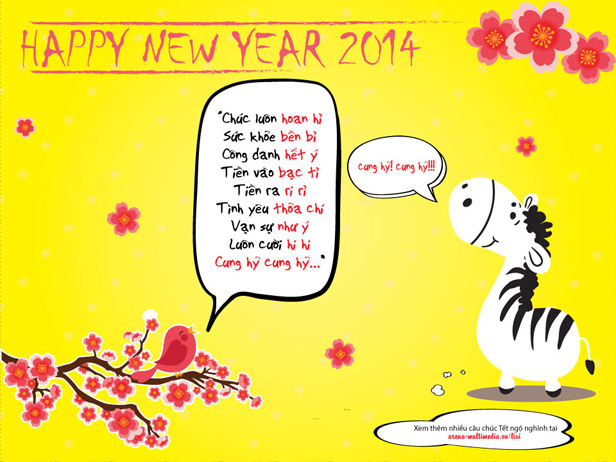 HAPPY NEW YEAR 2014
"Chúc luôn hoan hỉ
Sức khỏe bền bỉ
Công danh hết ý
Tiền vào bạc tỉ
Tiền ra rỉ rỉ
Tình yêu thỏa chí
Vạn sự như ý
Luôn cười hi hi
Cung hỷ cung hỷ..."
Cung hỷ! Cung hỷ!!!
Xem thêm nhiều câu chúc Tết ngộ nghĩnh tại
arena-multimedia.vn/lixi